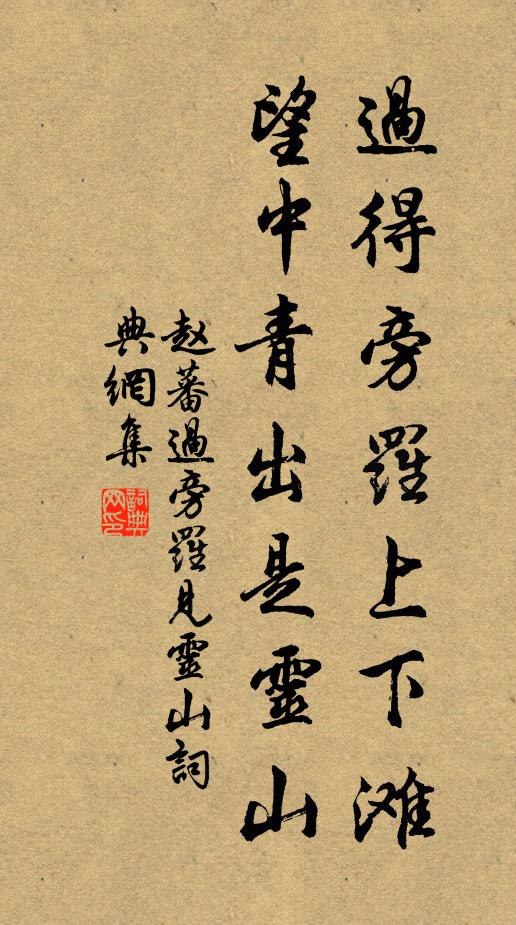 過得旁羅上下滩
望中青出是靈山
赵蕃過旁羅見靈山詞
典網集
詞典网印